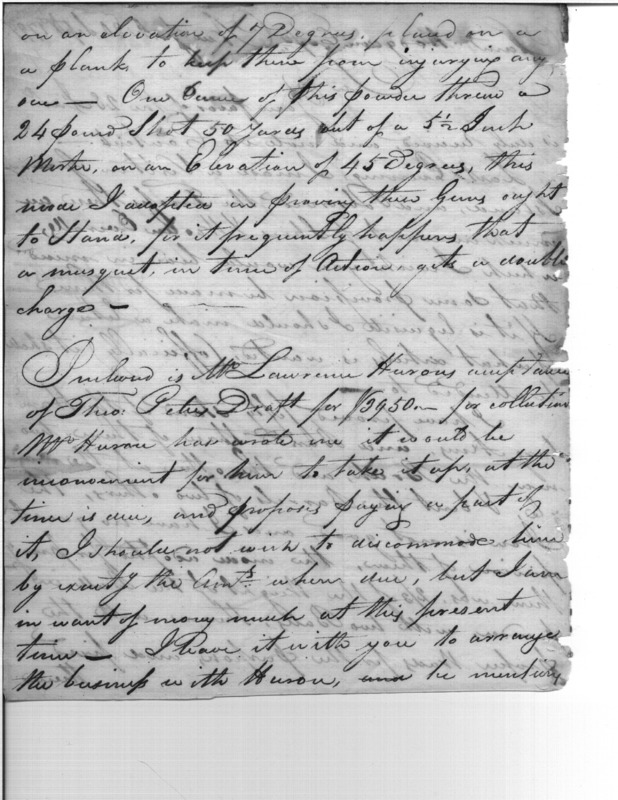 on an elevation of 7 Degrees. placed on a
a plank to keep them from injurying any
one — One Ounce of this powder threw a
24 pound Shot 50 Yards out of a 5½ Inch
on an Elevation of 45 Degrees, this
mode I adopted in proving these Guns ought
to Stand, for it frequently happens, that
a musquet, in time of Action gets a double
charge —
Inclosed is Mr Lawrence Hurons acceptance
of Theo: Peters Draft for $3950— for collection
Mr Huron has wrote me it would be
inconvenient for him to take it up, at the
time is due, and proposes paying a part of
it, I should not wish to discommode him
by exactg the Amt. when due, but I am
in want of money much at this present
time — I leave it with you to arrange
the business with Huron, and he mentions